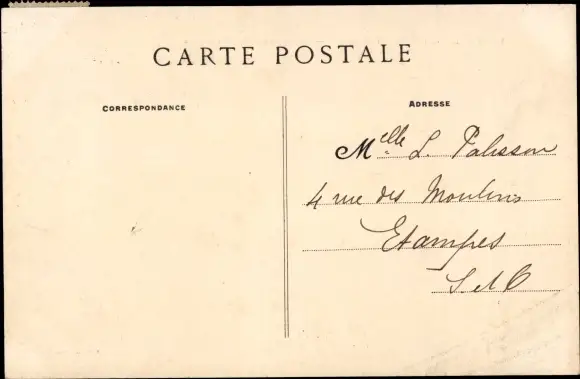 CARTE POSTALE
CORRESPONDANCE
ADRESSE
Melle L. Palisson
4 rue des Moulins
Etampes
S et O